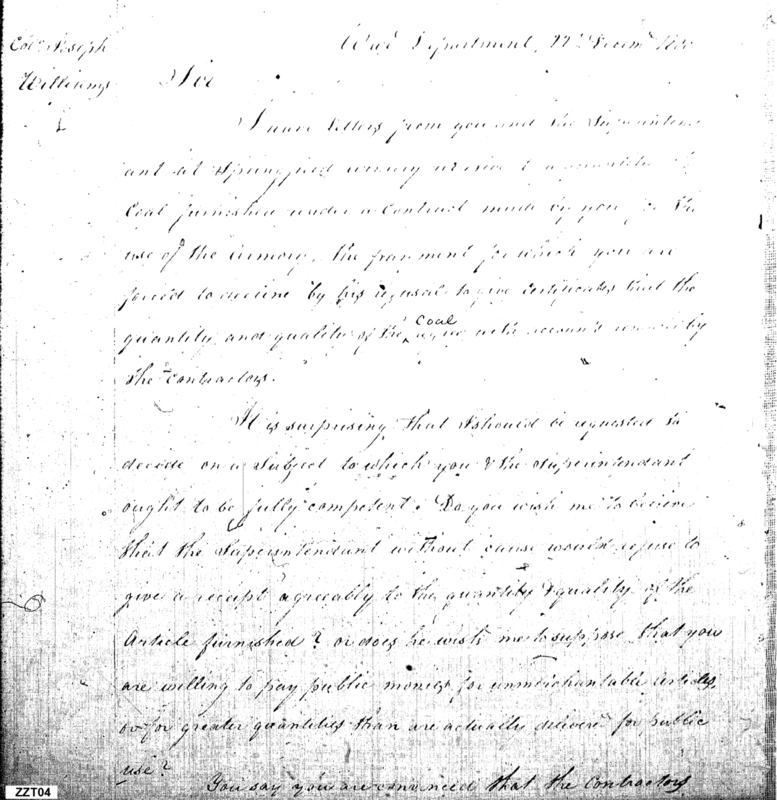 Colo. Joseph
Williams
War Department, 22d Decemr
Sir
I have letters from you and the Superintend
ant at Springfield relative to a quantity of
Coal furnished under a Contract made by you for the
use of the Armory, the payment for which you are
forced to decline by his refusal to give Certificates that the
quantity and quality of the Coal agree with accounts rendered by
the Contractors.
It is surprising that I should be requested to
decide on a Subject to which you & the Superintendant
ought to be fully competent. Do you wish me to believe
that the Superintendant without cause would refuse to
give a receipt agreeably to the quantity & quality of the
Article furnished? or does he wish me to suppose that you
are willing to pay public monies for unmerchantable articles,
or for greater quantities than are actually delivered for public
use?
You say you are convinced that the Contractors
ZZT04